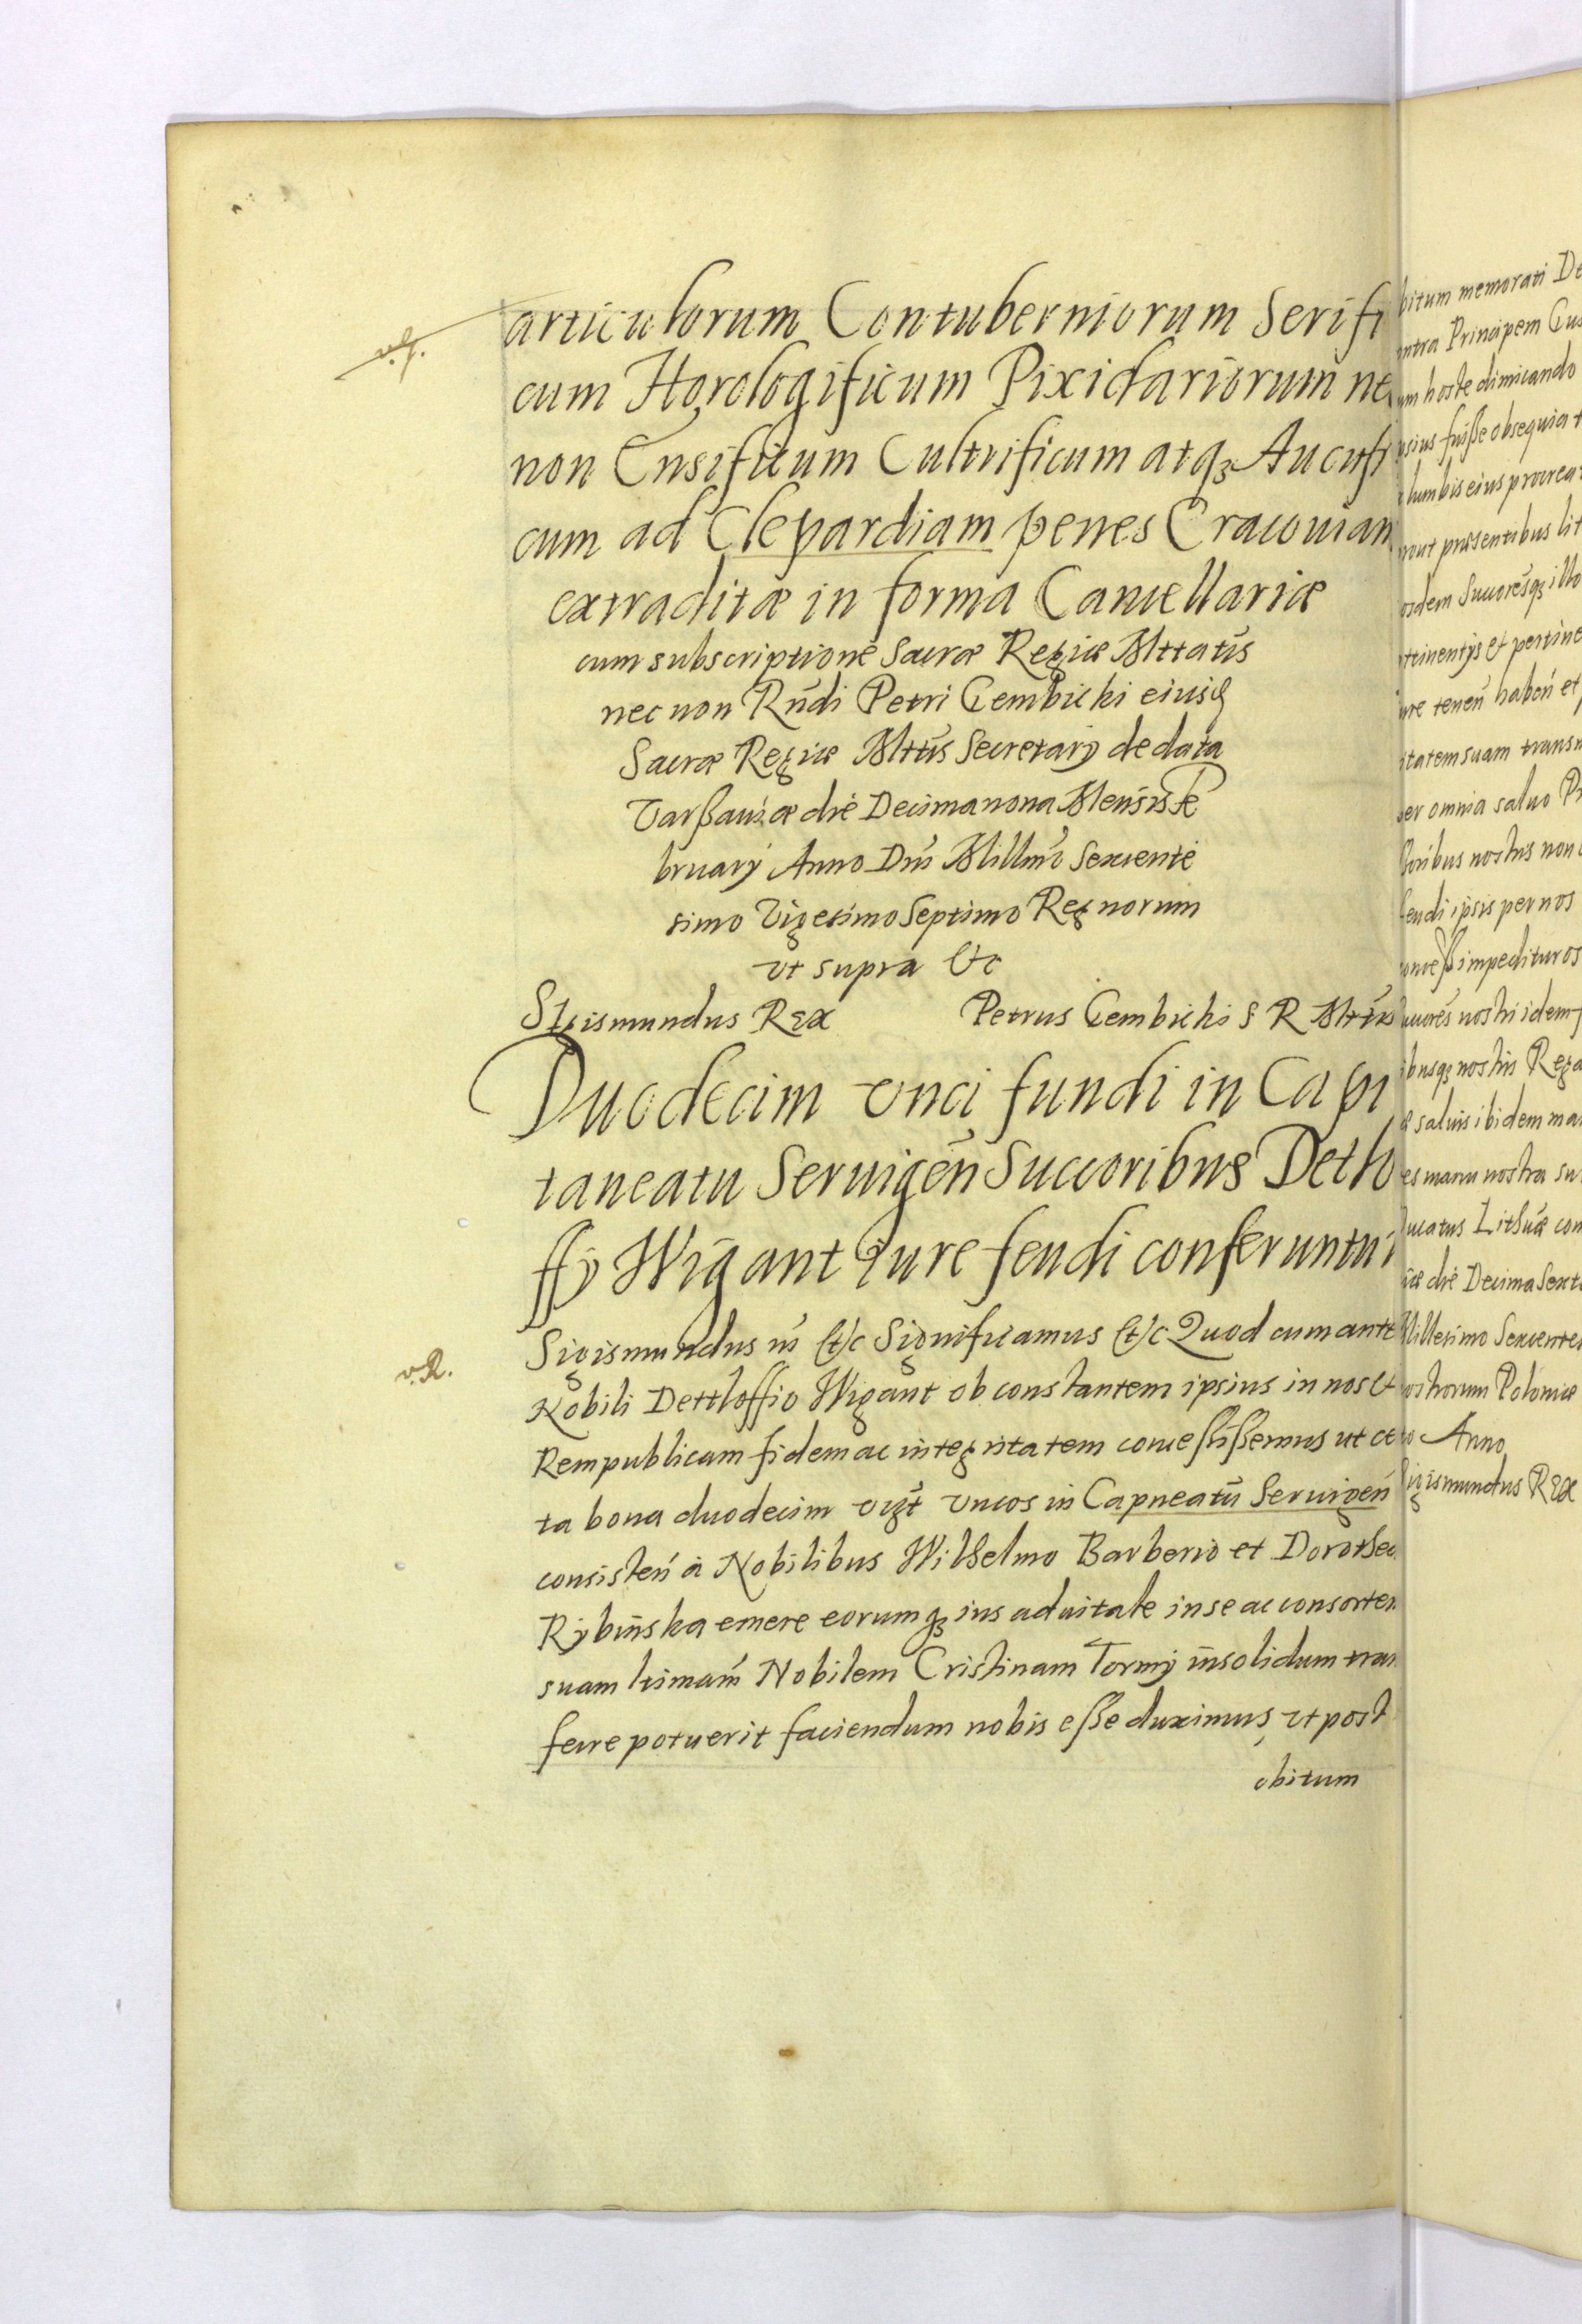 articulorum Contuberniorum Serifi
cum Horologificum Pixidariorum ne
non Ensificum Cultrificum atqꝫ Aucufi
cum ad Clepardiam penes Cracouiam
extraditæ in forma Cancellariæ
cum subscriptione Sacræ Regiæ Mttatis
nec non Rndi Petri Gembicki eiusd
Sacræ Regiæ Mttis Secretarÿ de data
Varßauiæ die Decimanona Mensis Fe
bruarÿ Anno Dni Millmo Sexcente
simo Vigesimo Septimo Regnorum
vt supra &c
Sigismundus REX Petrus Gembicki S R Mttis
Duodecim vnci fundi in Capi
taneatu Seruigen Succoribus Detlo
ffÿ Wigant Jure feudi conferuntur
v.R.
Sigismundus III &c Significamus &c Quod cum ante
Nobili Dettloffio Wigant ob constantem ipsius in nos &
Rempublicam fidem ac integritatem conceßißemus ut cer
ta bona duodecim vigt vncos in Capneatu Seruigen
consisten à Nobilibus Wilhelmo Barberio et Dorothea
Rÿbinska emere eorumqꝫ ius aduitale in se ac consortem
suam ltimam Nobilem Cristinam Tormÿ insolidum trans
ferre potuerit faciendum nobis eße duximus, vt post
obitum
bitum memorati De
ntra Principem Gus
um hoste dimicando
psius fuiße obsequia
lumbis eius procrea
rout præsentibus lit
osdem Succoresqꝫ illo
ttinentÿs & pertine
ure tenen haben et
itatem suam transm
per omnia saluo
ßoribus nostris non
feudi ipsis per nos
onceß impedituros
uccores nostri idem
ibusqꝫ nostris Rega
æ saluis ibidem
es manu nostra su
Ducatus Lithuæ con
iæ die Decima Sexta
Millesimo Sexcentes
ostrorum Poloniæ
o Anno
Sigismundus REX